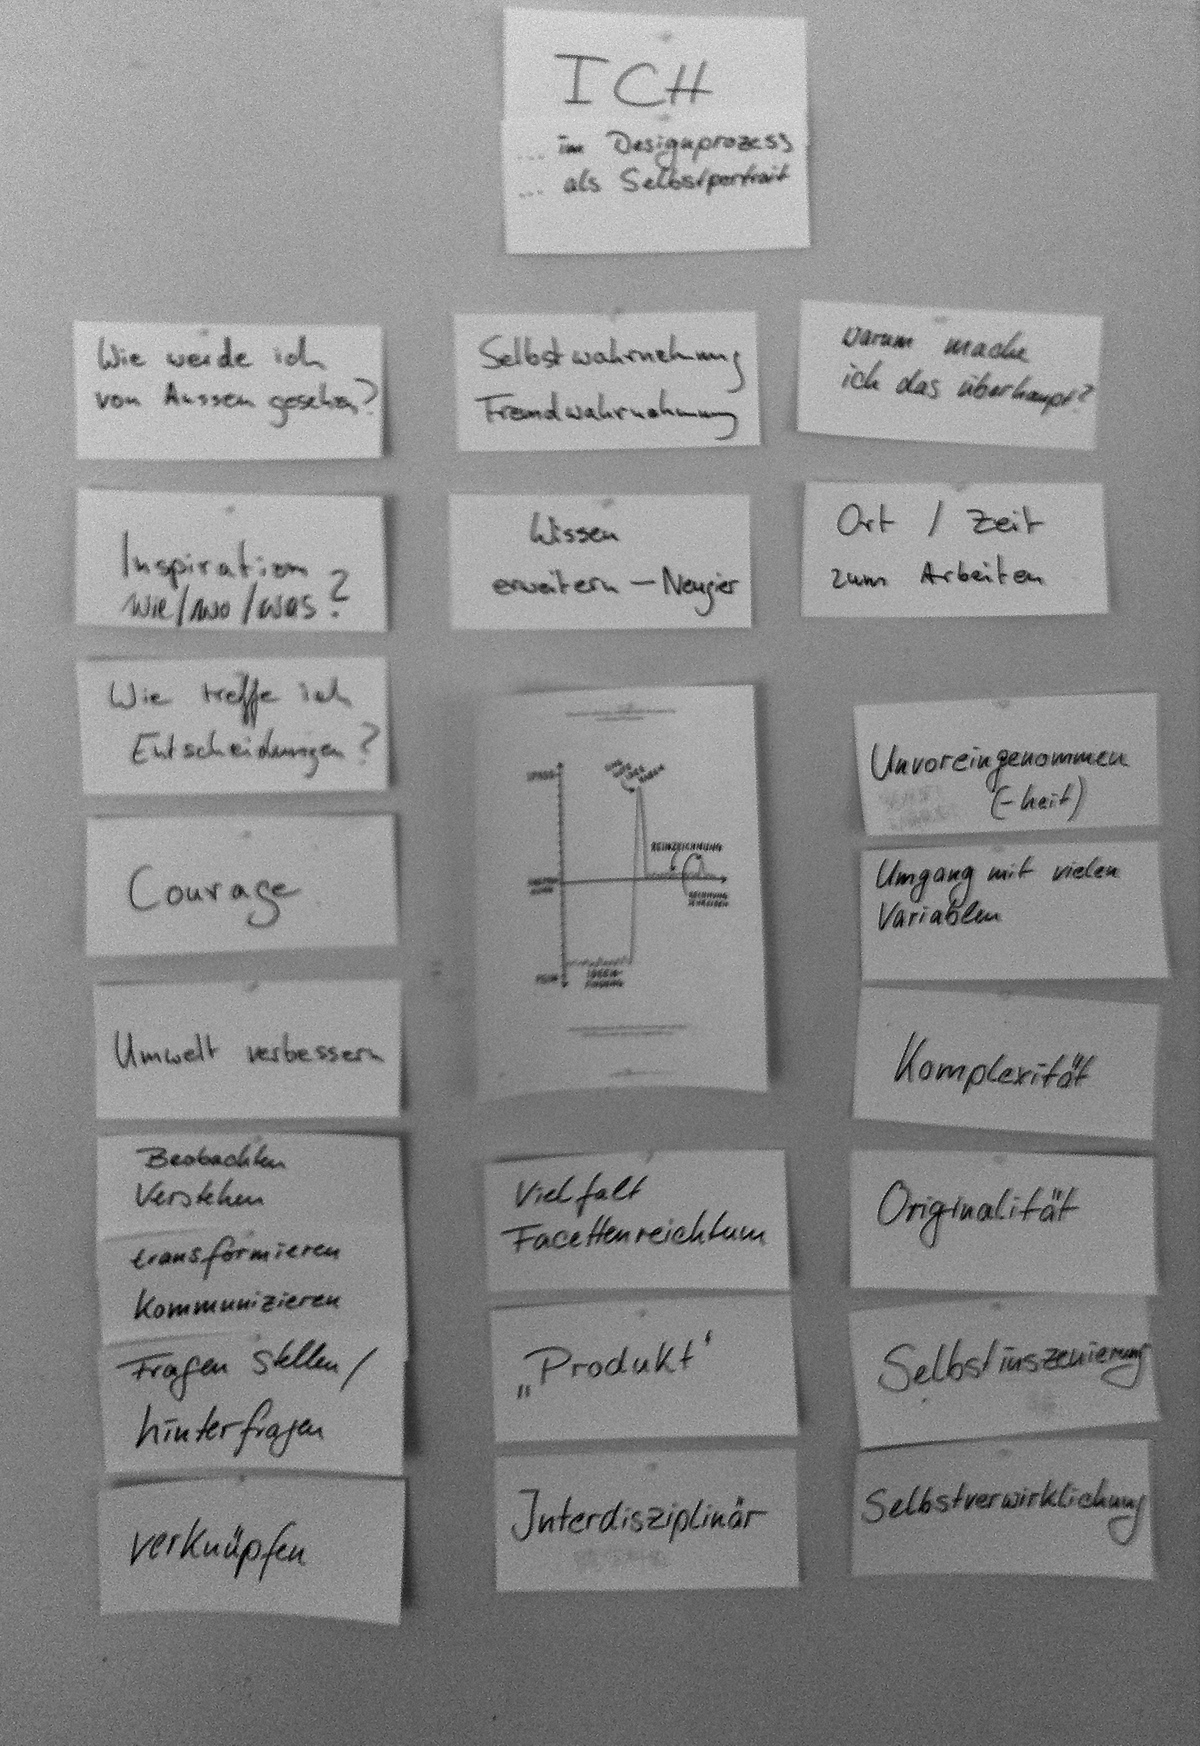 ICH
... im Designprozess
... als Selbstportrait
Wie werde ich
von Aussen gesehen?
Selbstwahrnehmung
Fremdwahrnehmung
Warum mache
ich das überhaupt?
Inspiration
wie/wo/was?
Wissen
erweitern – Neugier
Ort / Zeit
zum Arbeiten
Wie treffe ich
Entscheidungen?
Courage
Umwelt verbessern
Beobachten
Verstehen
transformieren
kommunizieren
Fragen stellen /
hinterfragen
verknüpfen
REINZEICHNUNG
RECHNUNG
SCHREIBEN
IDEEN-
FINDUNG
Vielfalt
Facettenreichtum
„Produkt‘
Interdisziplinär
Unvoreingenommen
(-heit)
Umgang mit vielen
Variablen
Komplexität
Originalität
Selbstinszenierung
Selbstverwirklichung